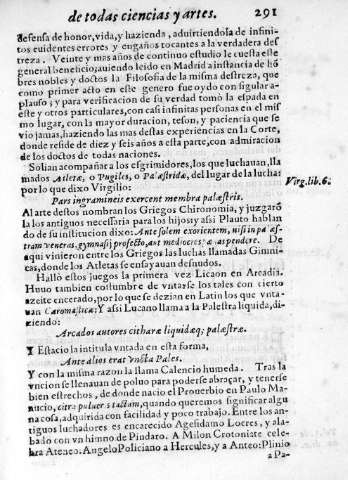 de todas ciencias y artes. 291
defensa de honor, vida, y hazienda, aduirtiendola de infini-
tos euidentes errores y engaños tocantes a la verdadera des
treza. Veinte y mas años de continuo estudio le cuesta este
general beneficio, auiendo leido en Madrid a instancia de hõ
bres nobles y doctos la Filosofia de la misma destreza, que
como primer acto en este genero fue oydo con sigular a-
plauso; y para verificacion de su verdad tomò la espada en
este y otros particulares, con casi infinitas personas en el mis
mo lugar, con la mayor duracion, teson, y paciencia que se
vio jamas, haziendo las mas destas experiencias en la Corte,
donde reside de diez y seis años a esta parte, con admiracion
de los doctos de todas naciones.
Solian acompañar a los esgrimidores, los que luchauan, lla
mados Atletæ, o Pugiles, o Palæstridæ, del lugar de la lucha:
por lo que dixo Virgilio: Virg. lib. 6.
Pars in gramineis exercent membra palæstris.
Al arte destos nombran los Griegos Chironomia, y juzgarõ
la los antiguos necessaria para los hijos: y assi Plauto hablan
do de su institucion dixo: Ante solem exorientem, nisi in palæs-
tram veneras, gymnasij præfecto, aut mediocres pœnas pendere. De
aqui vinieron entre los Griegos las luchas llamadas Gimni-
cas, donde los Atletas se ensayauan desnudos.
Hallò estos juegos la primera vez Licaon en Arcadia.
Huuo tambien costumbre de vntarse los tales con cierto
azeite encerado, por lo que se dezian en Latin los que vnta-
uan Y assi Lucano llama a la Palestra liquida, di-
ziendo:
Arcados autores citharæ liquidæq; palæstræ.
Y Estacio la intitula vntada en esta forma,
Ante alios erat vncta Pales.
Y con la misma razon la llama Calencio humeda. Tras la
vncion se llenauan de poluo para poderse abraçar, y tenerse
bien estrechos, de donde nacio el Prouerbio en Paulo Ma-
nucio, citra pulueris tactum, quando queremos significar algu
na cosa, adquirida con facilidad y poco trabajo. Entre los an-
tiguos luchadores es encarecido Agelidamo Locres, y ala-
bado con vn himno de Pindaro. A Milon Crotoniate cele-
bra Ateneo: Angelo Policiano a Hercules, y a Anteo: Plinio
a Pa-